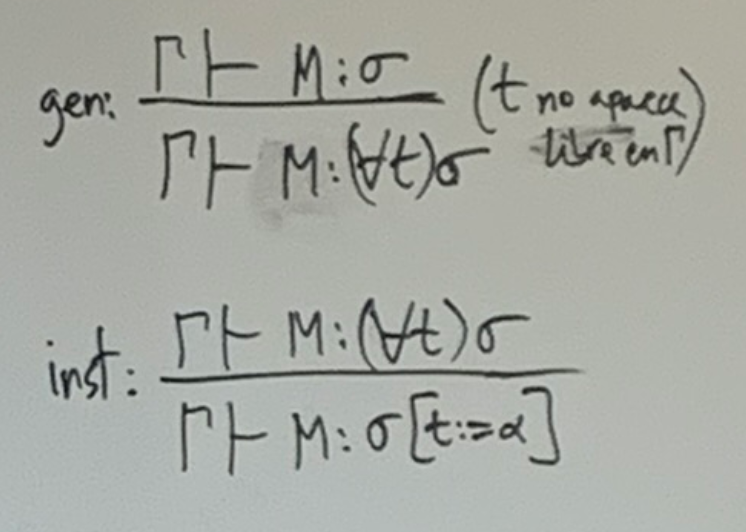 gen: Γ ⊢ M : σ (t no aparece
Γ ⊢ M : (∀t)σ libre en Γ)
inst: Γ ⊢ M : (∀t)σ
Γ ⊢ M : σ[t:=α]